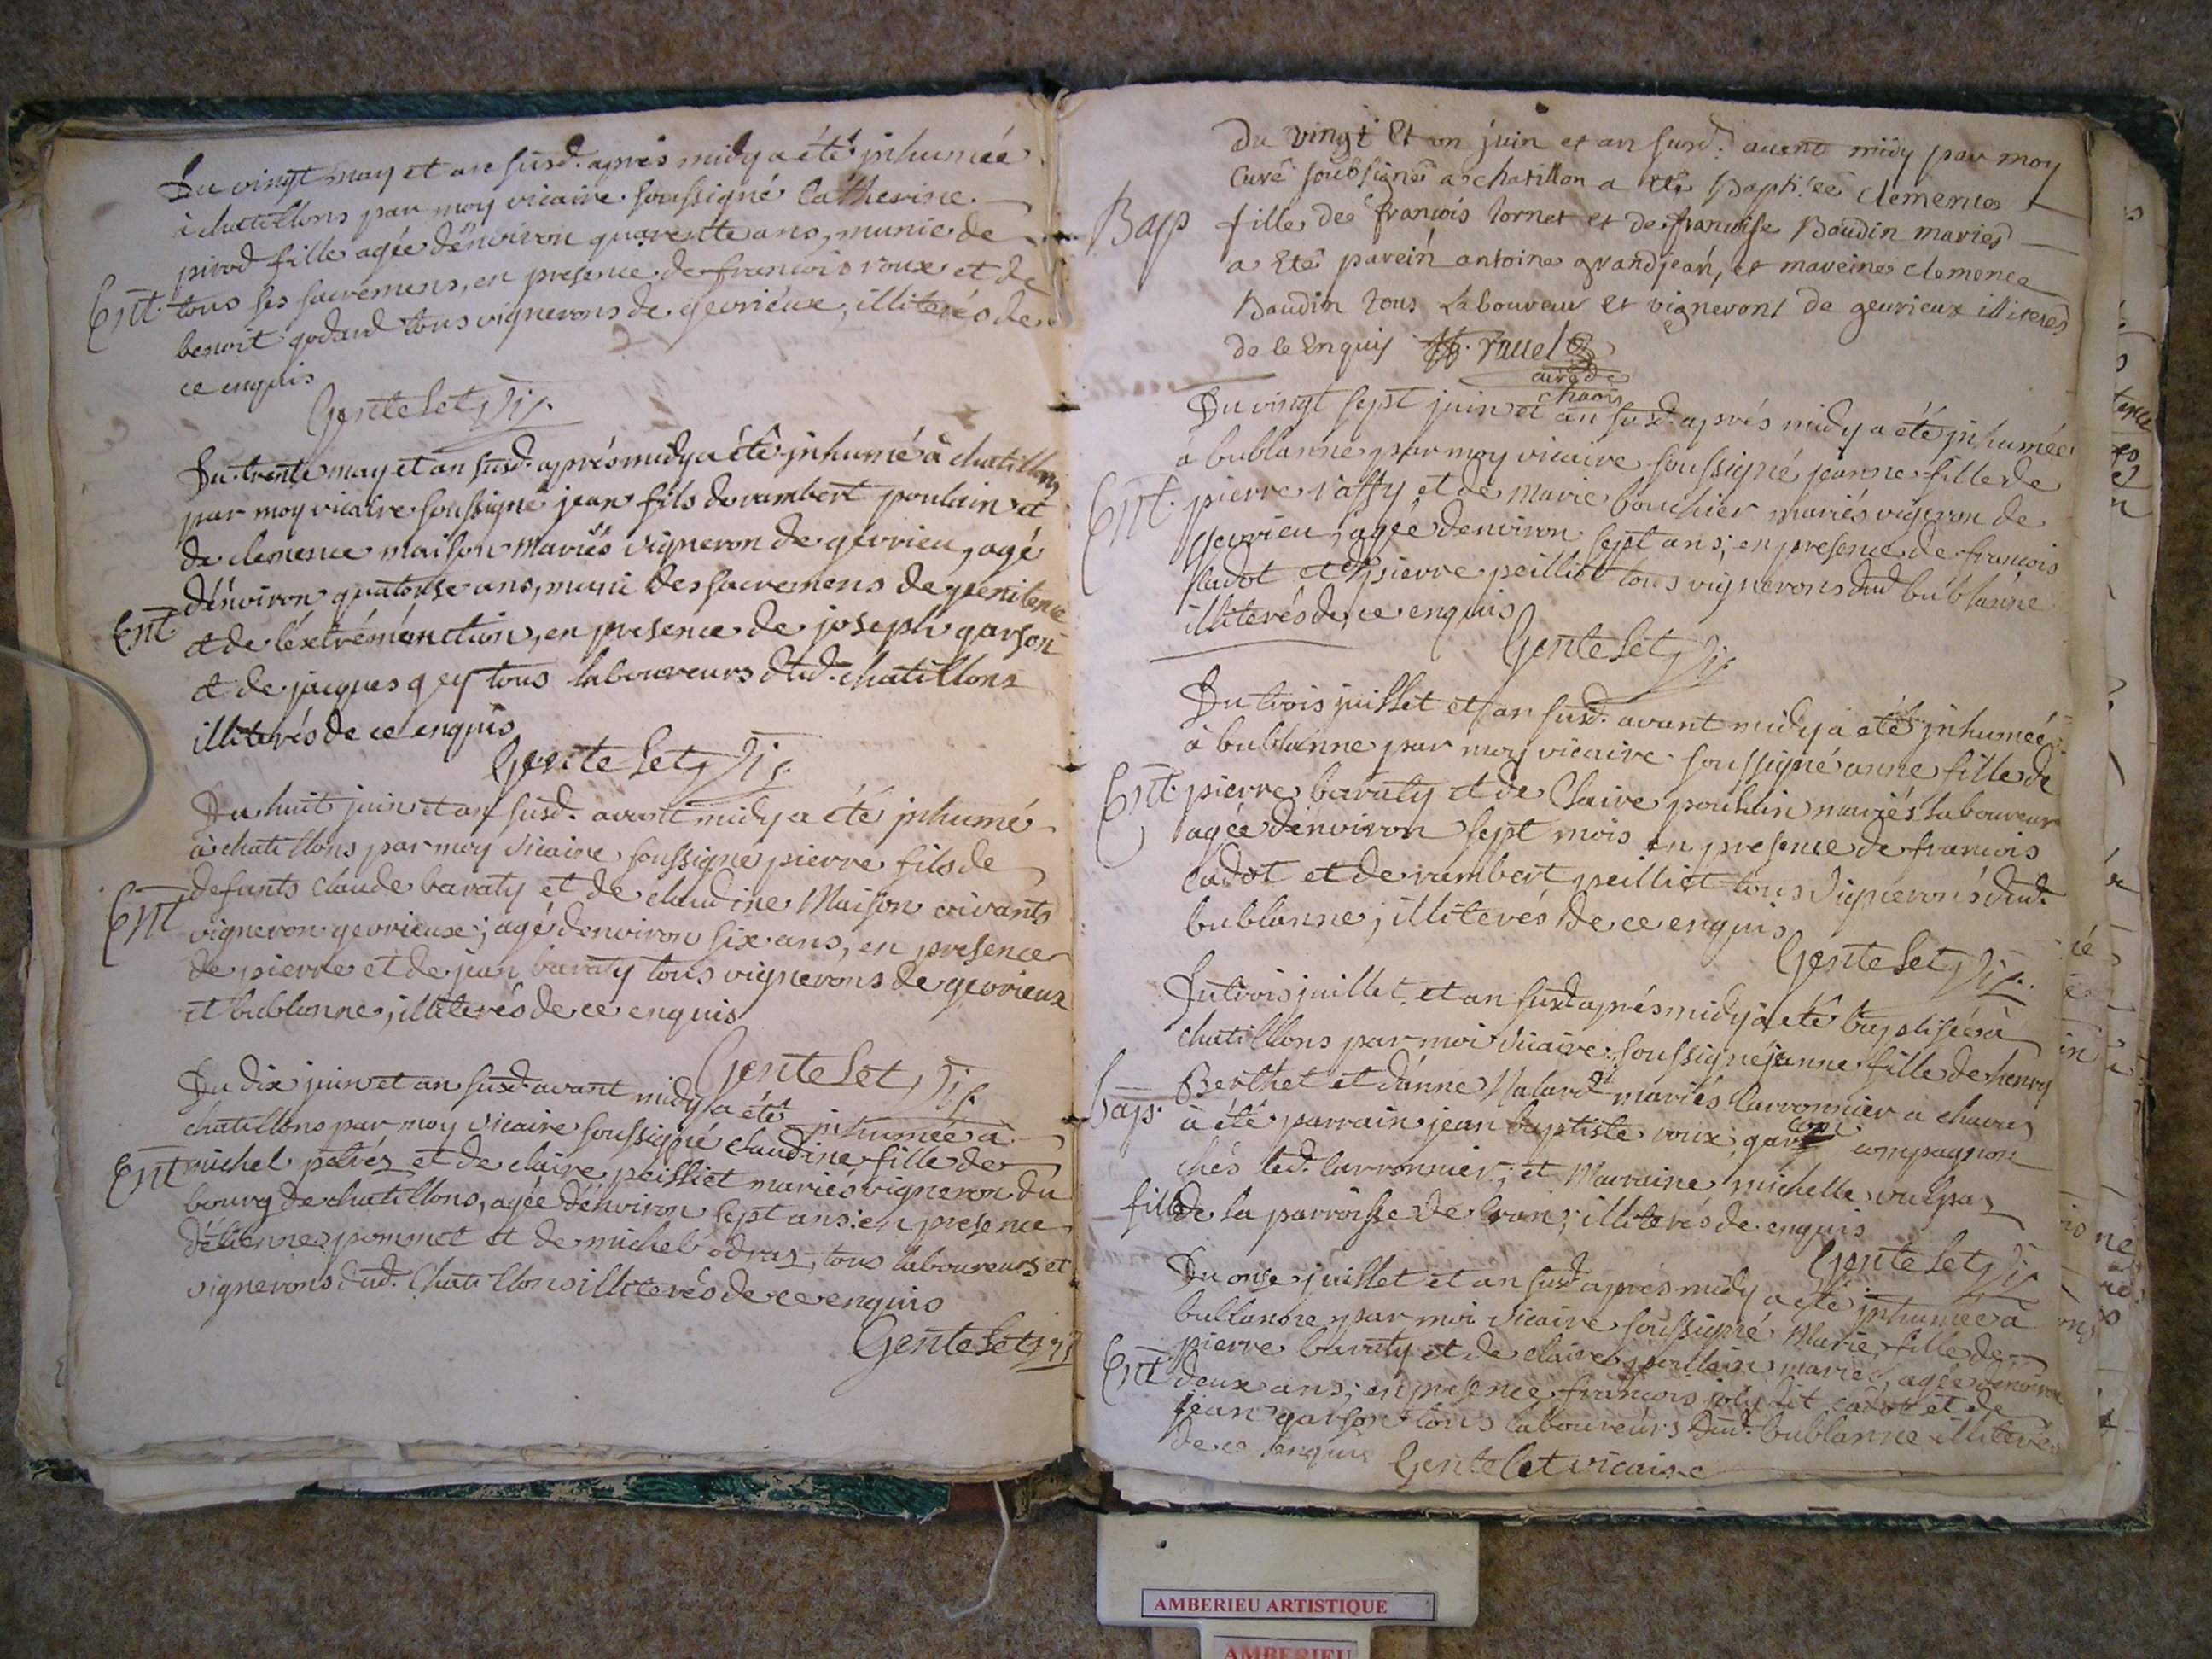 Du vingt may et an susd. apres midy a été jnhumée
à chatillons par moy vicaire soussigné Catherine
pirod fille agée dénviron quarente ans, munie de
Ent. tous ses sacremens, en presence de francois roux et de
benoit godard tous vignerons de gevrieux, illiterés de
ce enquis
Gentelet Vic.
Du trente may et an susd. aprés midy a été jnhumé à chatillons
par moy vicaire soussigné jean fils de rambert poulain et
de clemence maison mariés vigneron de gevrieu, agé
dénviron quatorse ans, muni des sacremens de penitence
Ent et de lextrémonction, en presence de joseph garson
et de jacques gey tous laboureurs dud. chatillons
illiterés de ce enquis
Gentelet Vic.
Du huit juin et an susd. avant midy a été jnhumé
à chatillons par moy vicaire soussigné pierre fils de
defunts claude baraty et de claudine Maison vivants
Ent vigneron gevrieux; agé denviron six ans, en presence
de pierre et de jean baraty tous vignerons de gevrieux
et bublanne, illiterés de ce enquis
Gentelet Vic.
Du dix juin et an susd. avant midy a été jnhumée à
chatillons par moy vicaire soussigné claudine fille de
Ent michel et de claire peilliet mariés vigneron du
bourg de chatillons, agée dénviron sept ans: en presence
détienne pommet et de michel tous laboureurs et
vignerons dud. Chatillons illiterés de ce enquis
Gentelet Vic
Du vingt Et un juin et an susd. avant midy par moy
Curé soubsigné a chatillon a eté Baptisée clemence
Bap fille de francois tornet et de francoise Baudin mariés
a Eté parein antoine grandjean, et mareine clemence
Baudin tous Laboureur et vigneront de geurieux illiteres
de le Enquis
curé de
chaon
Du vingt sept juin et an susd. aprés midy a été jnhumée
à bublanne par moy vicaire soussigné jeanne fille de
Ent. pierre raffy et de marie bouchier mariés vigneron de
gevrieu, agée denviron sept ans; en presence de francois
cadot et de pierre peilliet tous vignerons dud bublanne
illiterés de ce enquis
Gentelet Vic
Du trois juillet et an susd. avant midy a été jnhumée
à bublanne par moy vicaire soussigné anne fille de
Ent. pierre baraty et de Claire poulain mariés laboureur
agée dénviron sept mois en presence de francois
cadot et de rambert peilliet tous vignerons dud.
bublanne, illiterés de ce enquis
Gentelet Vic.
Du trois juillet et an susd aprés midy a eté baptisée à
chatillons par moi vicaire soussigné jeanne fille de henry
Bap. Berthet et dánne mariés a
à été parrain jean baptiste roux, compagnon
chés led. et Marraine michelle
fille de la parroisse de illiterés de enquis
Gentelet Vic
Du onse juillet et an susd aprés midy a été jnhumée à
bublanne par moi vicaire soussigné Marie fille de
pierre baraty et de claire poullain mariés, agée denviron
Ent deux ans; en presence francois joly dit cadot et de
jean garson tous laboureurs dud. bublanne illiterés
de ce enquis Gentelet vicaire
AMBERIEU ARTISTIQUE
AMBERIEU